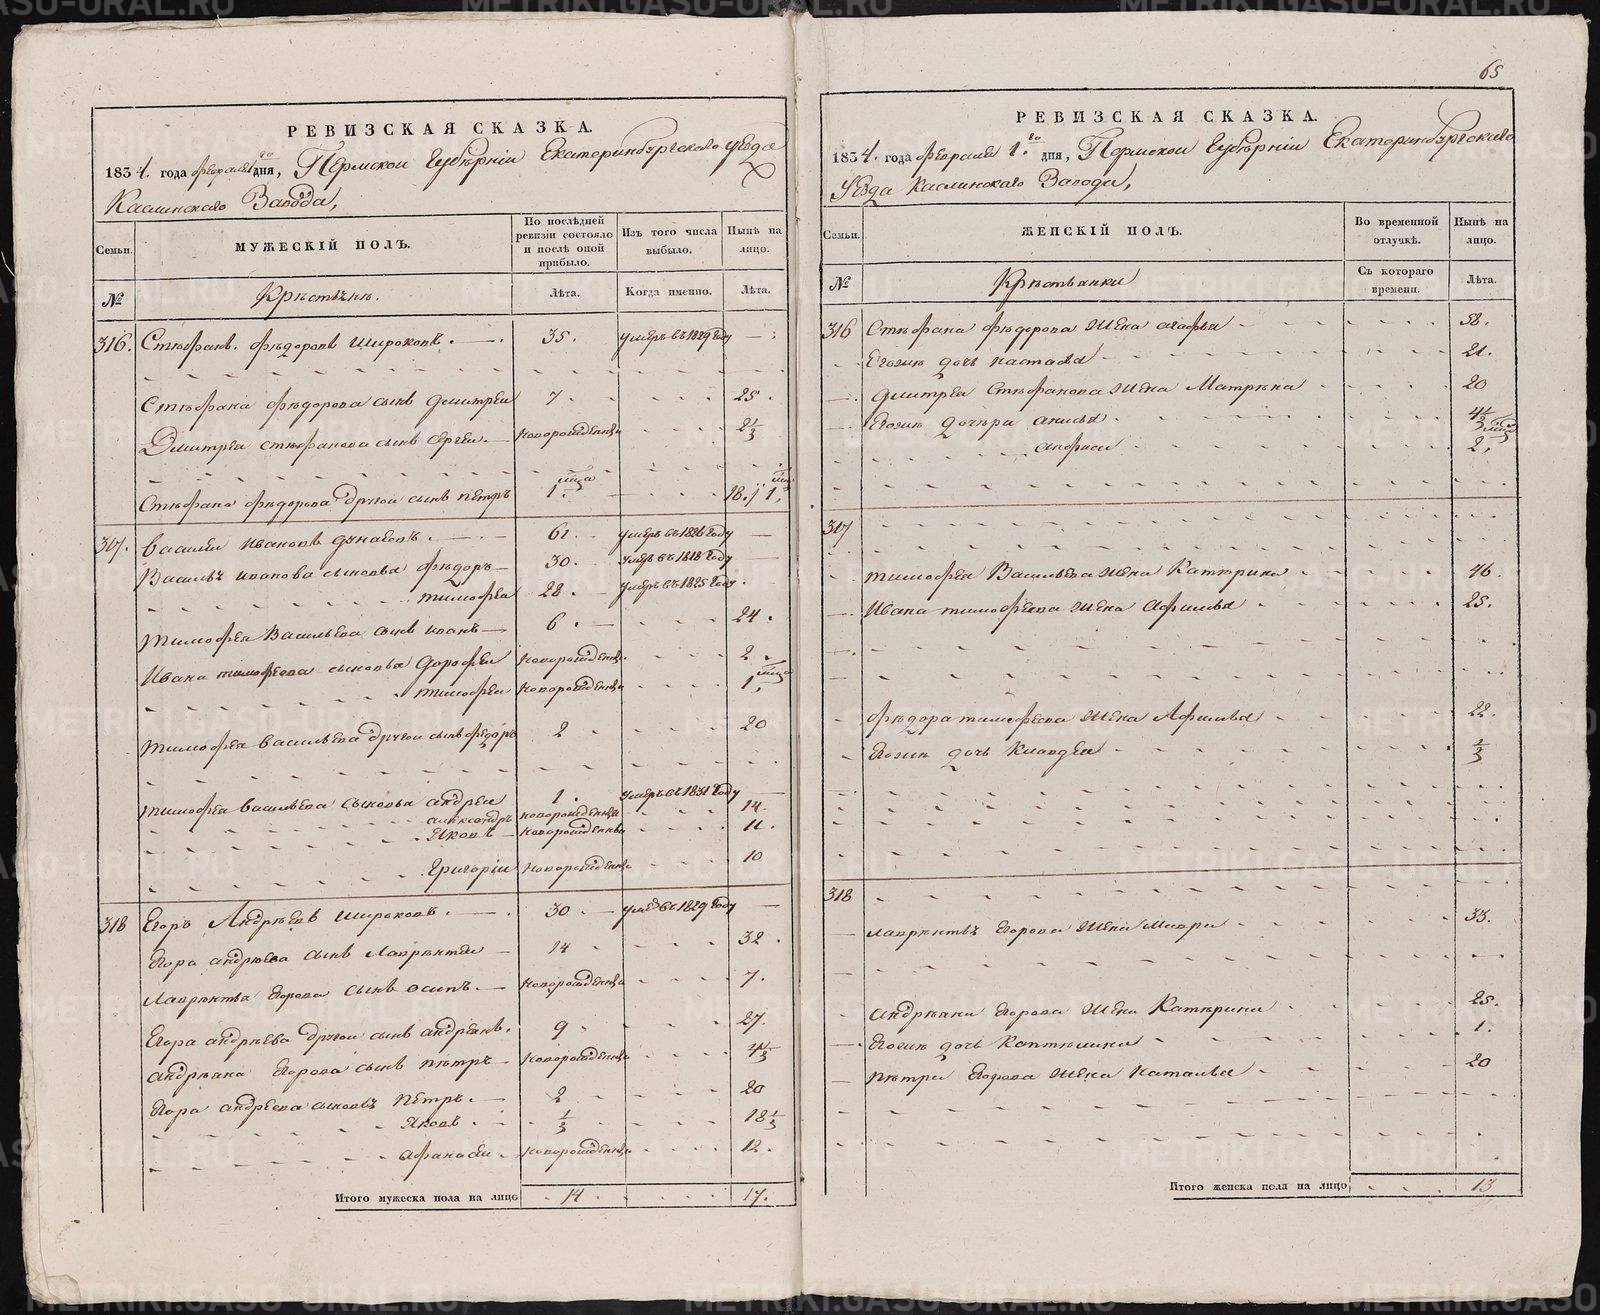 65
РЕВИЗСКАЯ СКАЗКА.
1834. года февраля 1го дня, Пермской Губерніи Екатеринбургскаго уѣзда
Каслинскаго Завода,
Семьи.
МУЖЕСКІЙ ПОЛЪ.
По послѣдней ревизіи состояло и послѣ оной прибыло.
Изъ того числа выбыло.
Нынѣ на лицо.
№
Крѣстьянѣ.
Лѣта.
Когда именно.
Лѣта.
316. Стѣфанъ Фѣдоровъ Широковъ. 35. умеръ въ 1829 году
Стѣфана Фѣдорова сынъ Дмитреи 7. 25.
Дмитрея стѣфанова сынъ Сергеи. новорожденный 2/3
Стѣфана Фѣдорова другои сынъ Пѣтръ 1. мца 18. 1. мца
317. Василеи Ивановъ Дунаевъ. 61. умеръ въ 1826 году
Васильѣ иванова сыновья Фѣдоръ 30. умеръ въ 1818 году
тимофеи 28. умеръ въ 1825 году.
Тимофея Васильева сынъ иванъ 6. 24.
Ивана тимофеева сыновья дорофеи новорожденны. 2
тимофеи новорожденны 1. мца
Тимофея васильева другои сынъ федоръ 2 20
Тимофея васильева сыновья андреи 1. умеръ въ 1831 году
александръ новорожденны 14.
Яковъ новорожденны 11.
Григоріи новорожденны 10
318 Егоръ Андрѣевъ Широковъ. 30. умеръ въ 1829 году
Егора андрѣева сынъ Лаврѣнтеи 14 32.
Лаврѣнтья Егорова сынъ осипъ. новорожденны 7.
Егора андрѣева другои сынъ андреянъ. 9 27.
Андрѣяна Егорова сынъ пѣтръ новорожденны
Егора андреева сыновья Пѣтръ. 2 20
Яковъ 1/3 18 1/3
афанасеи новорожденны 12.
Итого мужеска пола на лицо 14 17.
РЕВИЗСКАЯ СКАЗКА.
1834. года февраля 1го. дня, Пермской Губерніи Екатеринбургскаго
Уѣзда Каслинскаго Завода,
Семьи.
ЖЕНСКІЙ ПОЛЪ.
Во временной отлучкѣ.
Нынѣ на лицо.
№
Крѣстьянки
Съ котораго времени.
Лѣта.
316 Стѣфана фѣдорова жена агафья 58.
Егожъ дочь настасья 21.
Дмитрея Стѣфанова жена Матрѣна 20
Егожъ дочѣри анисья.
анфиса 2,
317
Тимофея Васильева жена Катѣрина 46.
Ивана тимофѣева жена Афимья 25.
Фѣдора тимофеева жена Афимья 22.
Егожъ дочь Клавдея 2/3
318
Лаврѣнтья Егорова жена Мавра 33.
Андрѣяна Егорова жена Катѣрина 25.
Егожъ дочь Каптѣлина 1.
Пѣтра Егорова жена Наталья 20
Итого женска пола на лицо 13
METRIKI.GASO-URAL.RU